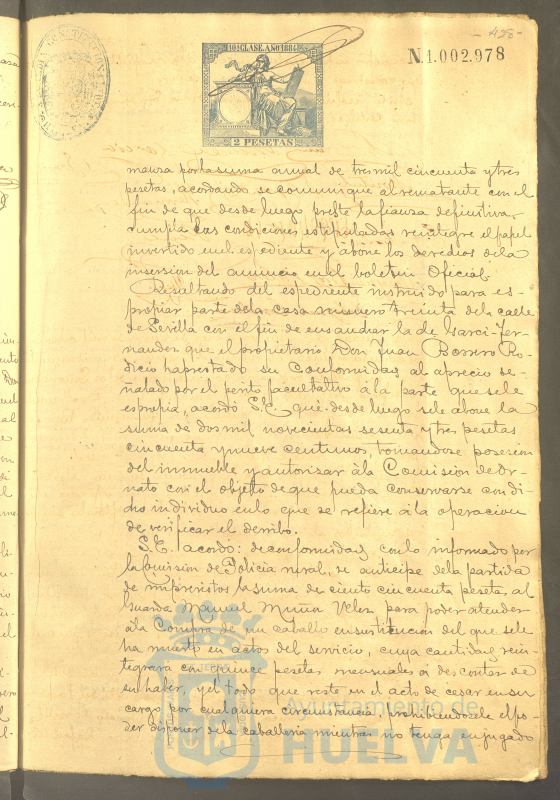 428
N.1.002.978
10ª CLASE. AÑO 1884
2 PESETAS
por la suma anual de tres mil cincuenta y tres
pesetas, acordando se comunique al rematante con el
fin de que desde luego preste la fianza definitiva,
cumpla las condiciones estipuladas reintegre el papel
invertido en el espediente y abone los derechos de la
insercion del anuncio en el boletin Oficial.
Resultando del espediente instruido para es-
propiar parte de la casa número treinta de la calle
de Sevilla con el fin de ensanchar la de Garci-Fer-
nandez que el propietario Don Juan Borrero Ro-
dicio ha prestado su conformidad al aprecio se-
ñalado por el perito facultativo á la parte que se le
espropia, acordó S.E. que desde luego se le abone la
suma de dos mil novecientas sesenta y tres pesetas
cincuenta y nueve centimos, tomandose posesion
del inmueble y autorizar á la Comision de Or-
nato con el objeto de que pueda con di-
cho individuo en lo que se refiere á la operacion
de verificar el derribo.
S.E. acordó: de conformidad con lo informado por
la Comision de Policía rural, se anticipe de la partida
de imprevistos la suma de ciento cincuenta pesetas, al
Guarda Manuel Muñoz Velez para poder atender
á la Compra de un caballo en sustitucion del que se le
ha muerto en actos del servicio, cuya cantidad rein-
tegrará con quince pesetas mensuales á descontar de
su haber, y el todo que reste en el acto de cesar en su
cargo por cualquiera circunstancia, prohibiendosele el po-
der disponer de la caballeria mientras no tenga enjugado
Ayuntamiento de
HUELVA